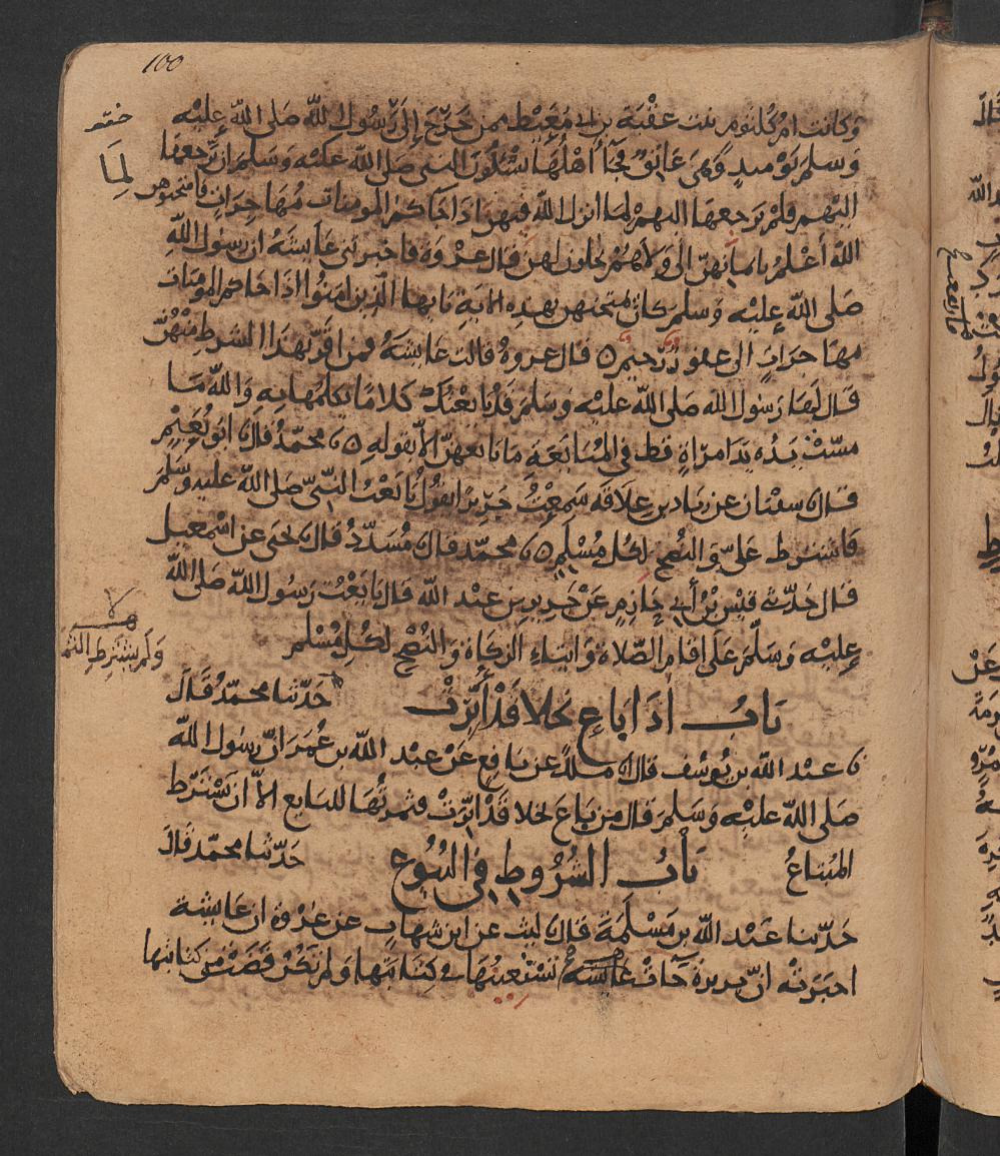 100
وكانت ام كلثوم بنت عقبة بن ابي معيط ممن خرج إلى رسول الله صلى الله عليه
وسلم يومئذ وهي عاتق فجآ أهلها يسئلون النبي صلى الله عليه وسلم ان يرجعها
اليهم فلم يرجعها اليهم لما انزل الله فيهن اذا جاكم المومنات مهاجرات فامتحنوهن
لِمَا
الله أعلم بايمانهن الى ولا هم يحلون لهن قال عروة فاخبرتني عايشة ان رسول الله
صلى الله عليه وسلم كان يمتحنهن بهذه الاية يايها الذين امنوا اذا جاكم المومنات
مهاجرات الى غفور رحيم ه قال عروة قالت عايشة فمن اقرّ بهذا الشرط منهنّ
قال لها رسول الله صلى الله عليه وسلم قد بايعتك كلاما يكلمها به والله ما
مسّت يده يد امرأة قط في المبايعة ما بايعهنّ الاّ بقوله ه محمّد قال ابو نعيم
قال سفيان عن زياد بن علاقه سمعت جريرا يقول بايعت النبيّ صلى الله عليه وسلم
فاشترط عليّ والنصح لكل مسلم ه محمّد قال مسدّد قال يحيى عن اسمعيل
قال حدّثني قيس بن أبي حازم عن جرير بن عبد الله قال بايعت رسول الله صلى الله
عليه وسلّم على اقام الصّلاة وايتاء الزكاة والنصح لكل مسلم
ولم يشترط الثمر
باب اذا باع نخلا قد أبّرت حدّثنا محمّد قال
عبد الله بن يوسف قال ملك عن نافع عن عبد الله بن عمر انّ رسول الله
صلى الله عليه وسلم قال من باع نخلا قد ابّرت فثمرتها للبايع الاّ ان يشترط
المبتاع حدّثنا محمّد قال
باب الشروط في البيوع
حدّثنا عبد الله بن مسلمة قال ليث عن ابن شهاب عن عروة ان عايشة
اخبرته انّ بريرة جآت عايشة تستعينها في كتابتها ولم تكن قضت من كتابتها